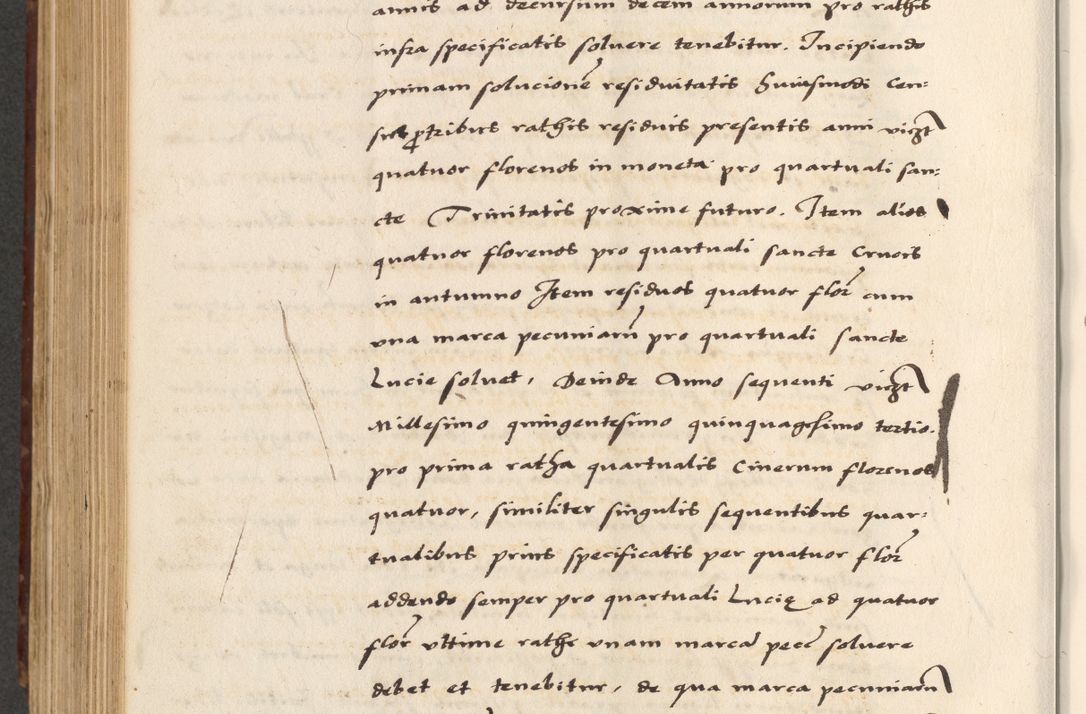 annis ad decursum decem annorum pro rathis
infra specificatis solvere tenebitur. Incipiendo
primam solucionē residuitatis huiusmodi Cen:
sus ꝓ tribus rathis residuis presentis anni vicꝫt
quatuor florenos in moneta pro quartuali san:
cte Trinitatis proxime futuro. Item alios
quatuor florenos pro quartuali sancte Crucis
in autumno Item residuos quatuor flor cum
una marca pecuniarū pro quartuali sancte
Lucie solvet, Deinde Anno sequenti vicꝫt
Millesimo quingentesimo quinquagesimo tertio.
pro prima ratha quartualis Cinerum florenos
quatuor, similiter singulis sequentibus quar:
tualibus prius specificatis per quatuor flor
addendo semper pro quartuali Lucię ad quatuor
flor ultime rathe unam marcā pecc solvere
debet et tenebitur, de qua marca pecuniarū